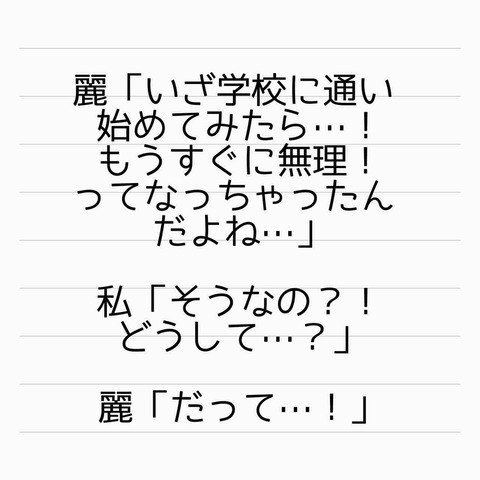 麗「いざ学校に通い
始めてみたら…！
もうすぐに無理！
ってなっちゃったん
だよね…」
私「そうなの？！
どうして…？」
麗「だって…！」